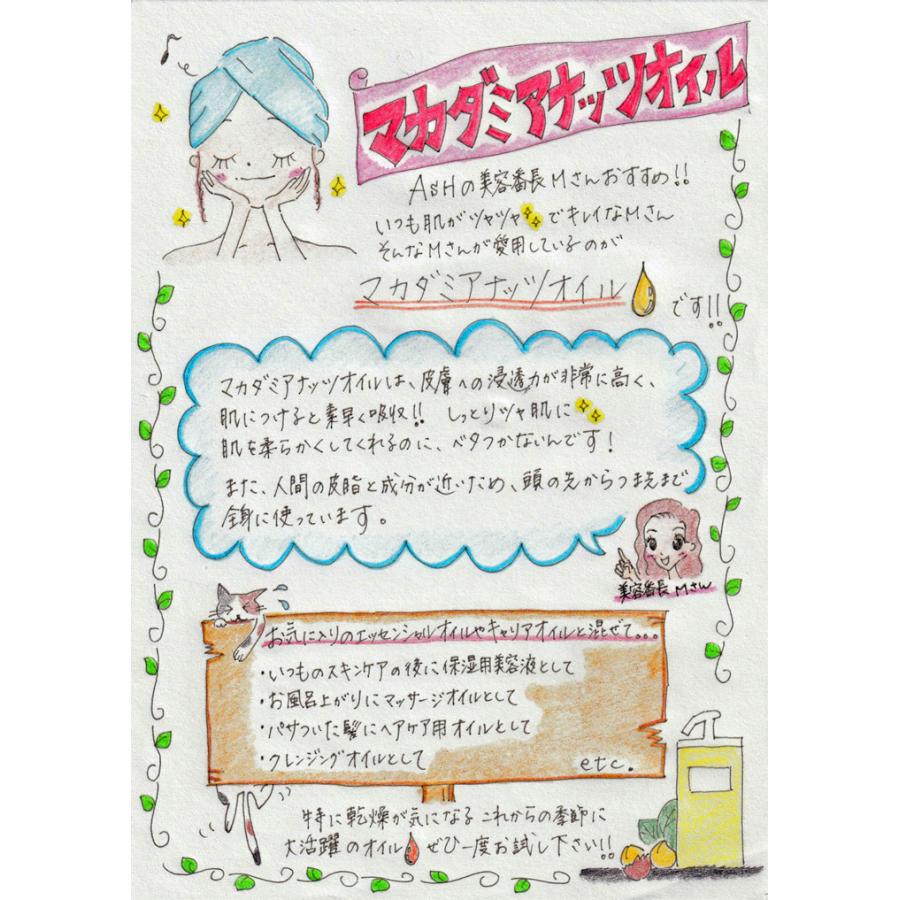 マカダミアナッツオイル
ASHの美容番長Mさんおすすめ!!
いつも肌がツヤツヤでキレイなMさん
そんなMさんが愛用しているのが
マカダミアナッツオイル
です!!
マカダミアナッツオイルは、皮膚への浸透力が非常に高く、
肌につけると素早く吸収!! しっとりツヤ肌に
肌を柔らかくしてくれるのに、ベタつかないんです!
また、人間の皮脂と成分が近いため、頭の先からつま先まで
全身に使っています。
美容番長Mさん
お気に入りのエッセンシャルオイルやキャリアオイルと混ぜて...
・いつものスキンケアの後に保湿用美容液として
・お風呂上がりにマッサージオイルとして
・パサついた髪にヘアケア用オイルとして
・クレンジングオイルとして
etc.
特に乾燥が気になるこれからの季節に
大活躍のオイルぜひ一度お試し下さい!!